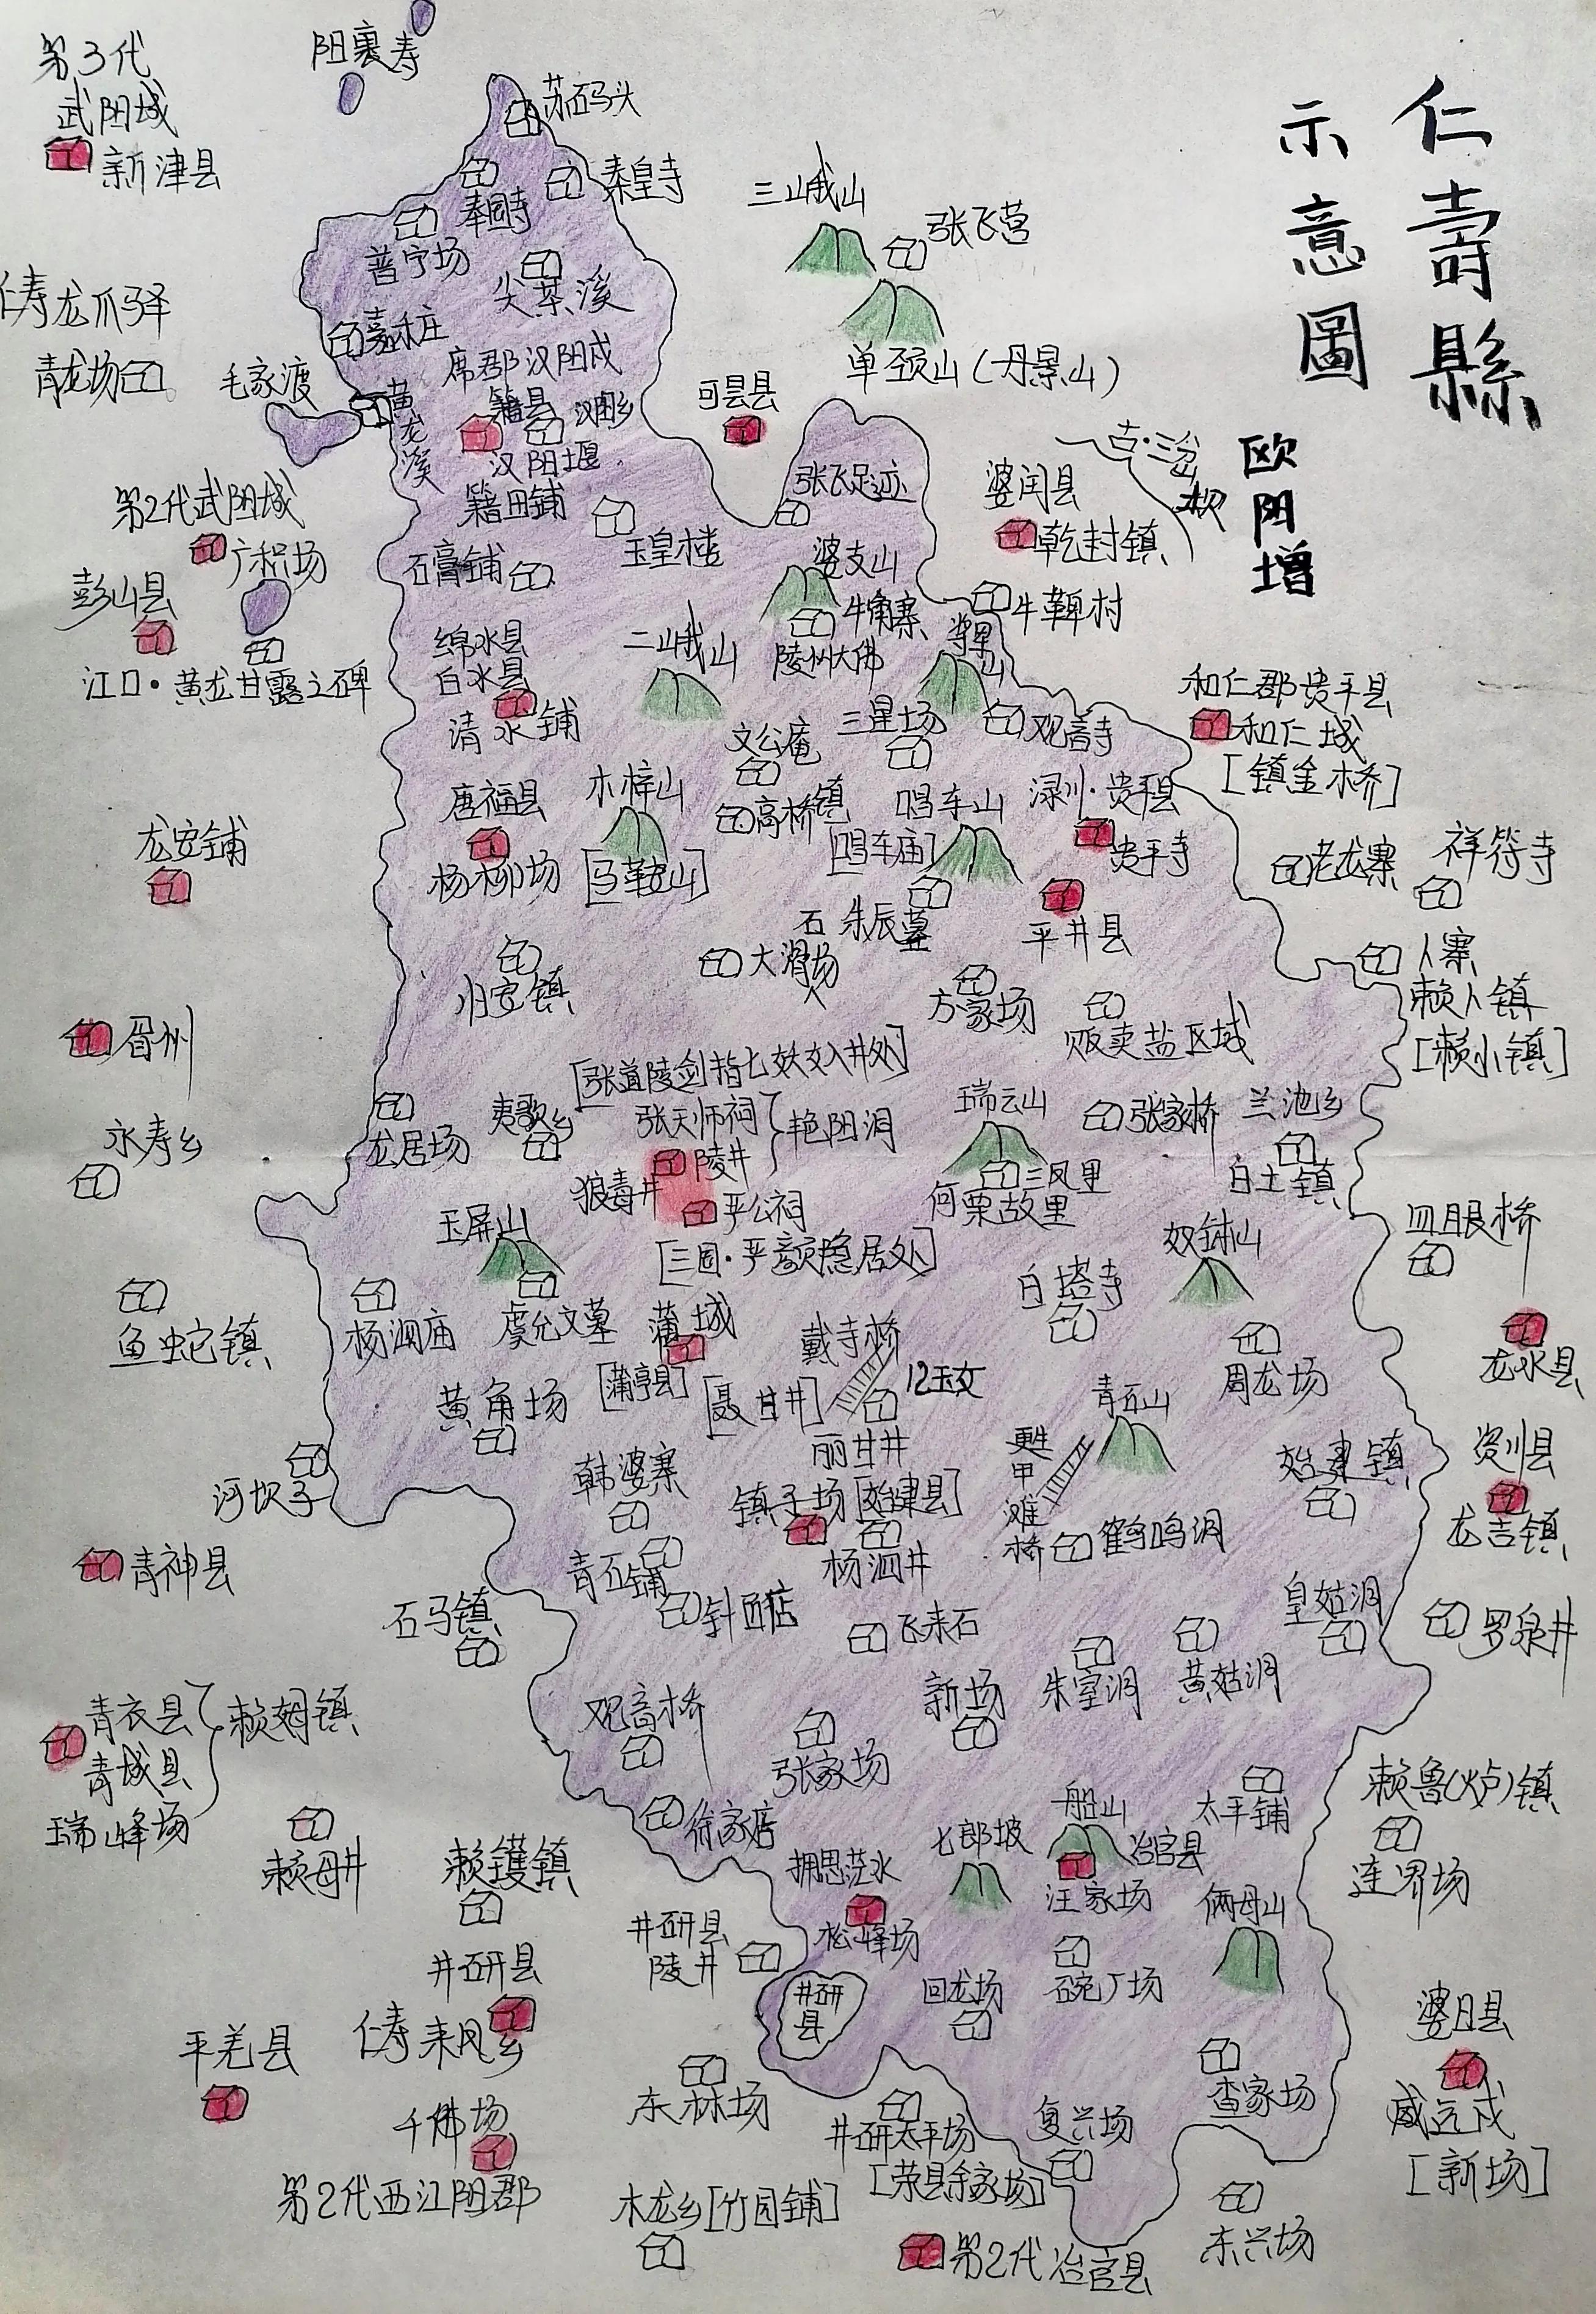 仁壽縣
示意圖
欧阳增
第3代
武阳城
新津县
阳裹寿
苏码头
秦皇寺
奉国寺
普宁场
尖茶溪
三峨山
张飞营
单颈山(丹景山)
仁寿龙爪驿
青龙场
毛家渡
黄龙溪
席郡汉阳戍
籍县
汉阳堰
籍田铺
可昙县
张飞足迹
婆闰县
乾封镇
第2代武阳城
广积场
彭山县
江口·黄龙甘露之碑
石膏铺
玉皇楼
婆支山
牛角寨
陵州大佛
牛鞞村
绵水县
白水县
清水铺
二峨山
三星场
文公庵
高桥镇
和仁郡贵平县
和仁城
[镇金桥]
唐福县
杨柳场
木梓山
[马鞍山]
唱车山
[唱车庙]
禄川·贵平县
贵平寺
平井县
石朱辰墓
老龙寨
祥符寺
龙安铺
归安镇
大滑场
方家场
贩卖盐区域
人寨
赖人镇
[赖小镇]
眉州
永寿乡
龙居场
夷歌乡
[张道陵剑指七妖女入井处]
张天师祠
陵井
艳阳洞
狼毒井
严公祠
[三国·严颜隐居处]
瑞云山
三凤里
何栗故里
张家桥
兰池乡
白土镇
四眼桥
玉屏山
虞允文墓
杨泗庙
鱼蛇镇
蒲城
[蒲亭县]
戴寺桥
12玉女
[聂甘井]
丽甘井
白塔寺
奴钵山
周龙场
龙水县
黄角场
河坝子
韩婆寨
镇子场[始建县]
杨泗井
青石山
甑甲滩桥
鹤鸣洞
始建镇
资川县
龙吉镇
青神县
石马镇
青石铺
针匠店
飞来石
朱室洞
黄姑洞
皇姑洞
罗泉井
青衣县
青城县
瑞峰场
赖姆镇
赖母井
赖镬镇
观音桥
张家场
新场
徐家店
七郎坡
船山
冶官县
汪家场
太平铺
赖鲁(炉)镇
连界场
俩母山
拥思茫水
松峰场
井研县
陵井
井研县
井研县
仁寿来凤乡
平羌县
千佛场
第2代西江阳郡
东林场
回龙场
碗厂场
查家场
复兴场
井研太平场
[荣县余家场]
木龙乡[竹园铺]
第2代冶官县
东兴场
婆日县
威远戍
[新场]